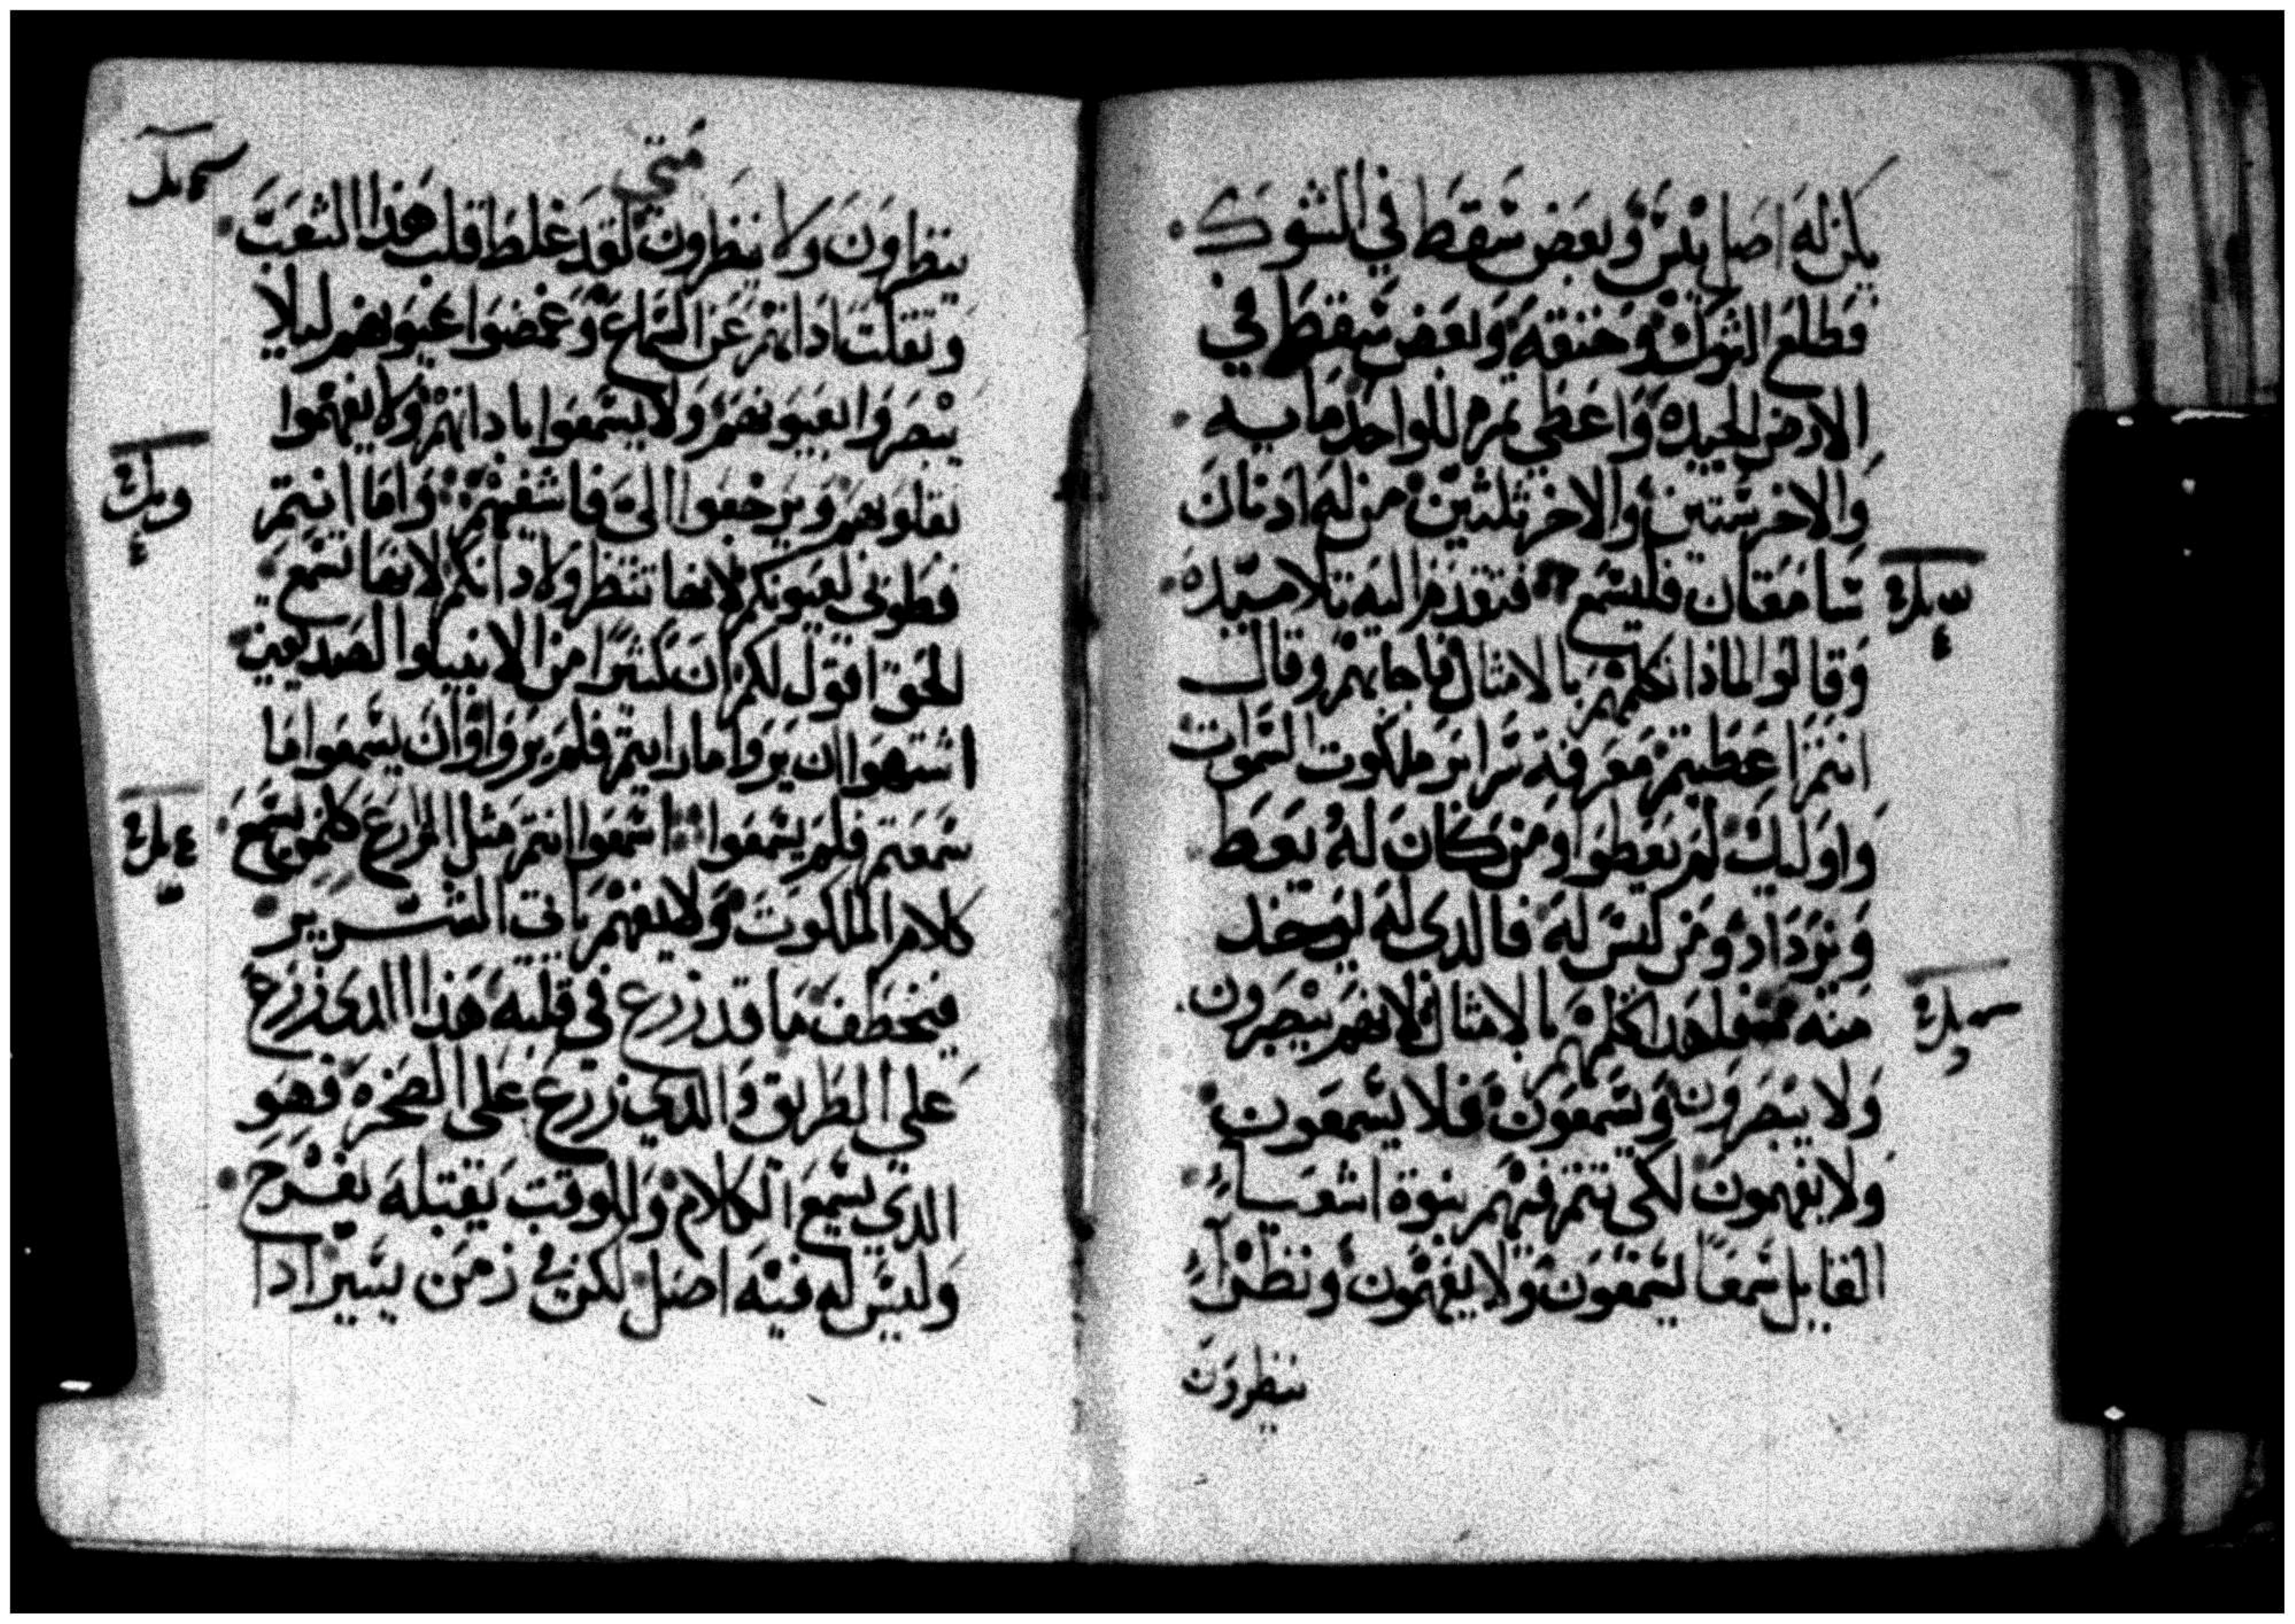 يكن له اصل يبس وبعض سقط في الشوك
فطلع الشوك وخنقه وبعض سقط في
الارض الجيده واعطى تمره للواحد مايه
والاخر ستين والاخر ثلثين من له ادنان
سامعتان فليسمع فتقدم اليه تلاميده
وقالوا لماذا تكلمهم بالامثال فاجابهم وقال
انتم اعطيتم معرفة سراير ملكوت السموات
واوليك لم يعطوا ومن كان له يعط
ويزداد ومن ليس له فالدى له ليوخد
منه فلهدا اكلمهم بالامثال لانهم يبصرون
ولا يبصرون ويسمعون فلا يسمعون
ولا يفهمون لكى تتم فيهم نبوة اشعيا
القايل سمعا تسمعون ولا يفهمون ونظرا
ينظرون
متى
ينظرون ولا ينظرون لقد غلظ قلب هذا الشعب
وثقلت اذانهم عن السماع وغمضوا عيونهم ليلا
يبصروا بعيونهم ولا يسمعوا باذانهم ولا يفهموا
بقلوبهم ويرجعوا الى فاشفيهم واما انتم
فطوبى لعيونكم لانها تنظر ولاذانكم لانها تسمع
الحق اقول لكم ان كثيرا من الانبيا والصديقين
اشتهوا ان يروا ما رايتم فلم يروا وان يسمعوا ما
سمعتم فلم يسمعوا اسمعوا انتم مثل الزارع كلمن يسمع
كلام الملكوت ولا يفهم ياتي الشرير
فيخطف ما قد زرع في قلبه هذا الدى زرع
على الطريق والدي زرع على الصخره فهو
الدي يسمع الكلام وللوقت يقبله بفرح
وليس له فيه اصل لكن في زمن يسير ادا